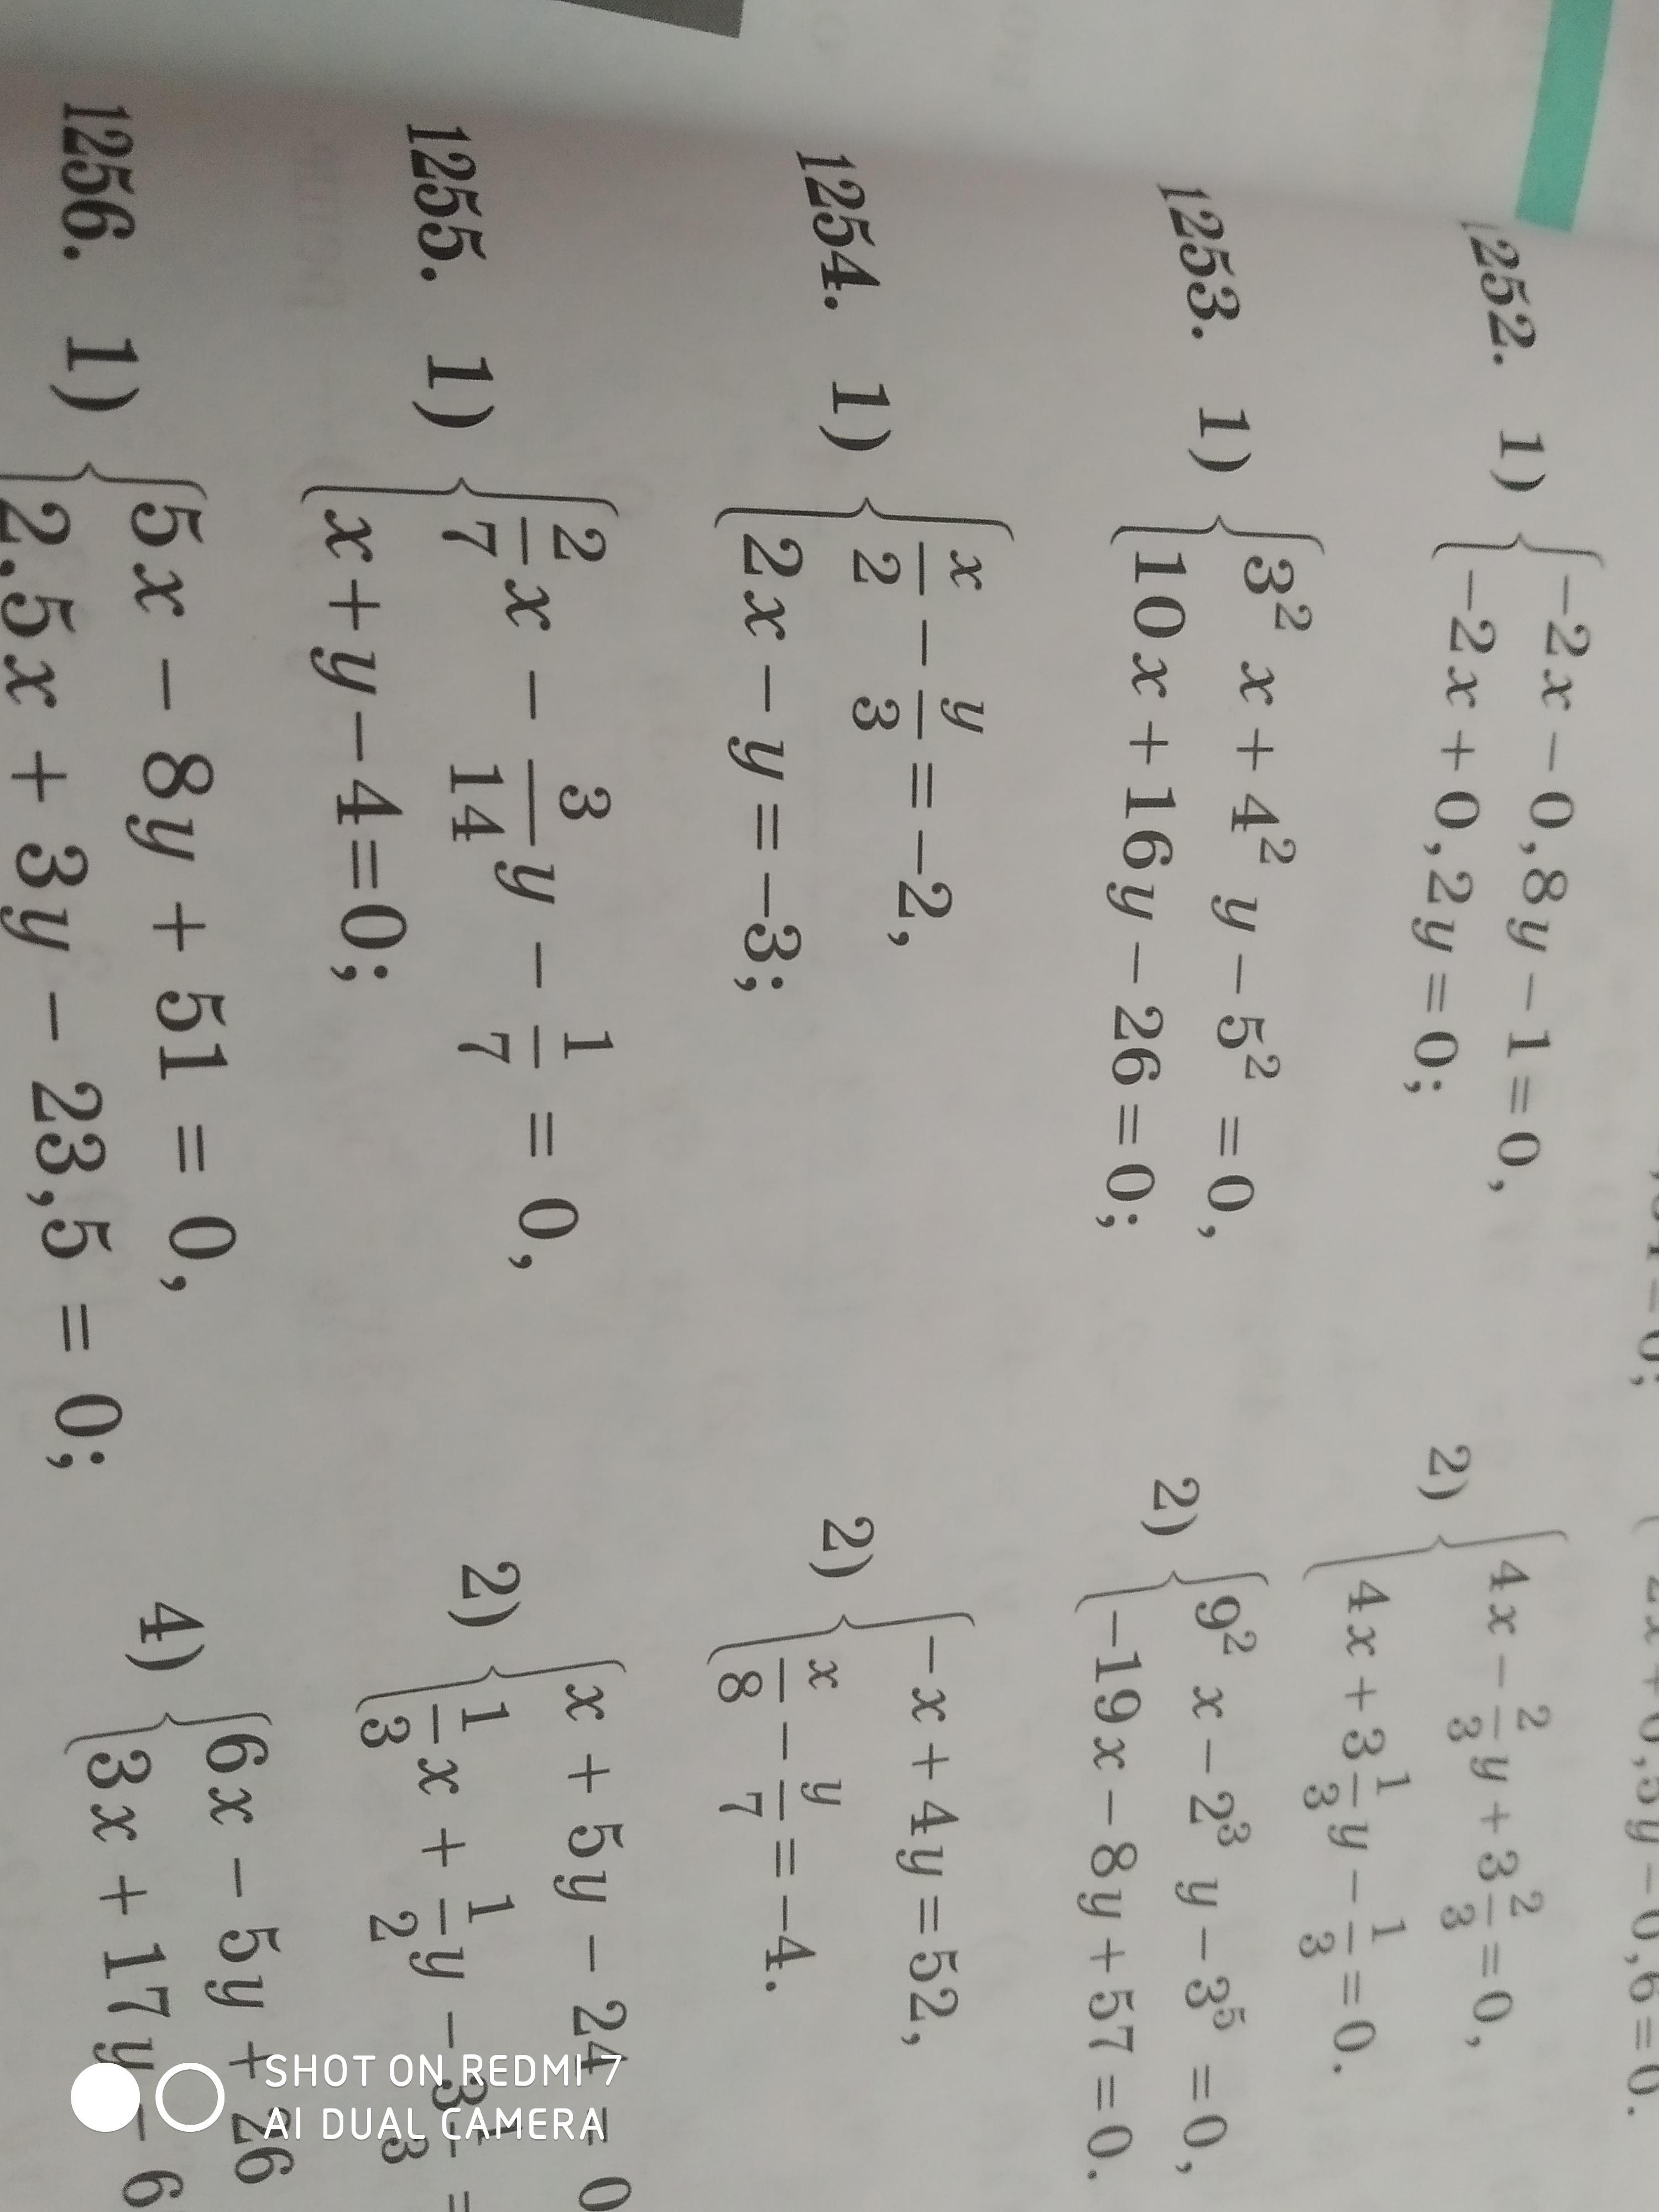 1252. 1) { -2x - 0,8y - 1 = 0,
-2x + 0,2y = 0;
2) { 4x - 2/3 y + 3 2/3 = 0,
4x + 3 1/3 y - 1/3 = 0.
1253. 1) { 3² x + 4² y - 5² = 0,
10x + 16y - 26 = 0;
2) { 9² x - 2³ y - 3⁵ = 0,
-19x - 8y + 57 = 0.
1254. 1) { x/2 - y/3 = -2,
2x - y = -3;
2) { -x + 4y = 52,
x/8 - y/7 = -4.
1255. 1) { 2/7 x - 3/14 y - 1/7 = 0,
x + y - 4 = 0;
2) { x + 5y - 24 = 0
1/3 x + 1/2 y - 3 1/3 =
1256. 1) { 5x - 8y + 51 = 0,
2,5x + 3y - 23,5 = 0;
4) { 6x - 5y + 26
3x + 17y - 6
SHOT ON REDMI 7
AI DUAL CAMERA